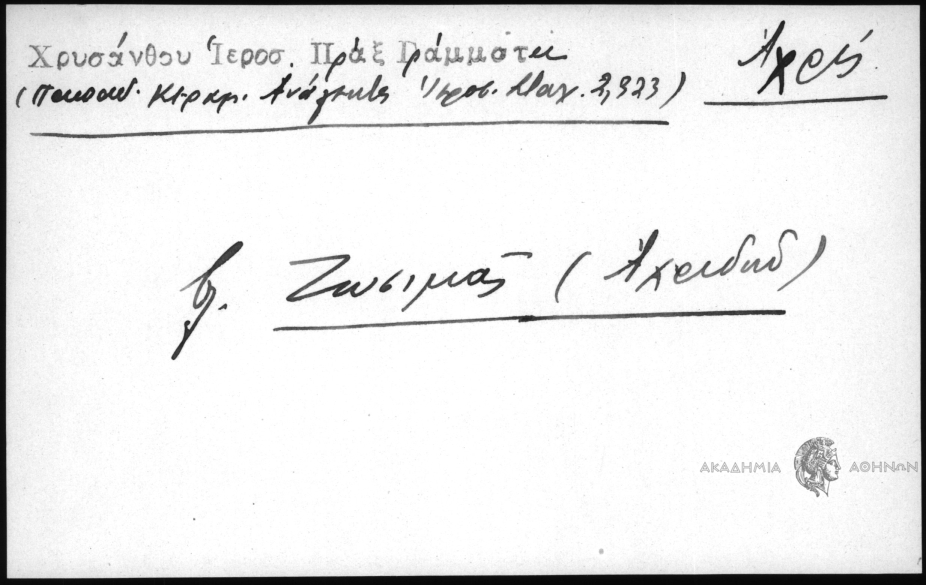 Χρυσάνθου Ἱεροσ. Πράξ Γράμματα Ἀχρίς
(Παπαδ. Κεραμ. Ἀνάλεκτα Ἱεροσ. Σταχ. 2,323)
βλ. Ζωσιμᾶς (Ἀχριδῶν)
ΑΚΑΔΗΜΙΑ ΑΘΗΝΩΝ